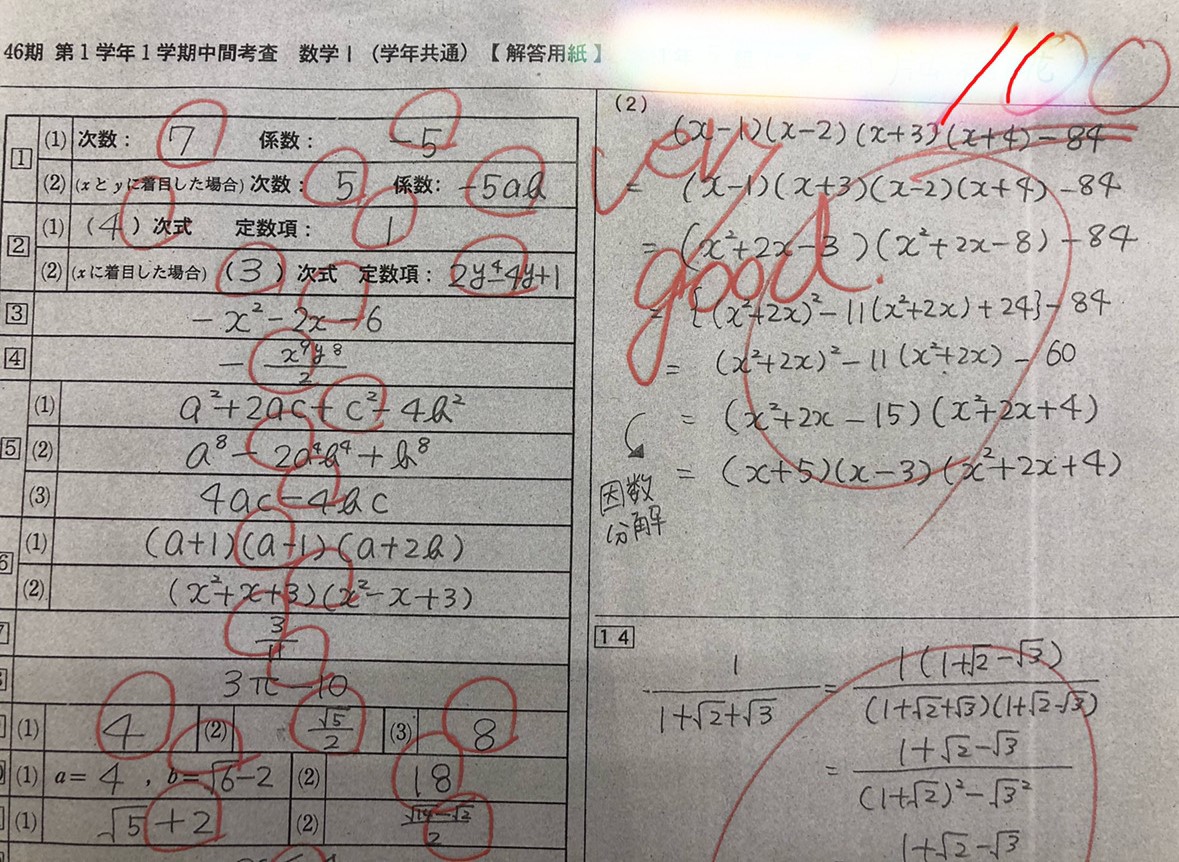 46期 第1学年1学期中間考査 数学Ⅰ (学年共通) 【解答用紙】
100
very
good.
1
(1) 次数: 7 係数: -5
(2) (xとyに着目した場合) 次数: 5 係数: -5ab
2
(1) (4) 次式 定数項: 1
(2) (xに着目した場合) (3) 次式 定数項: 2y⁴-4y+1
3 -x²-2x-6
4 -x⁹y⁸/2
5
(1) a²+2ac+c²-4b²
(2) a⁸-2a⁴b⁴+b⁸
(3) 4ac-4bc
6
(1) (a+1)(a-1)(a+2b)
(2) (x²+x+3)(x²-x+3)
7 3/11
3π-10
(1) 4 (2) √5/2 (3) 8
(1) a=4, b=√6-2 (2) 18
(1) √5+2 (2) √14-√2/2
(2)
(x-1)(x-2)(x+3)(x+4)-84
= (x-1)(x+3)(x-2)(x+4)-84
= (x²+2x-3)(x²+2x-8)-84
= {(x²+2x)²-11(x²+2x)+24}-84
= (x²+2x)²-11(x²+2x)-60
= (x²+2x-15)(x²+2x+4)
= (x+5)(x-3)(x²+2x+4)
因数
分解
14
1/(1+√2+√3) = 1(1+√2-√3)/((1+√2+√3)(1+√2-√3))
= (1+√2-√3)/((1+√2)²-√3²)
1+√2-√3